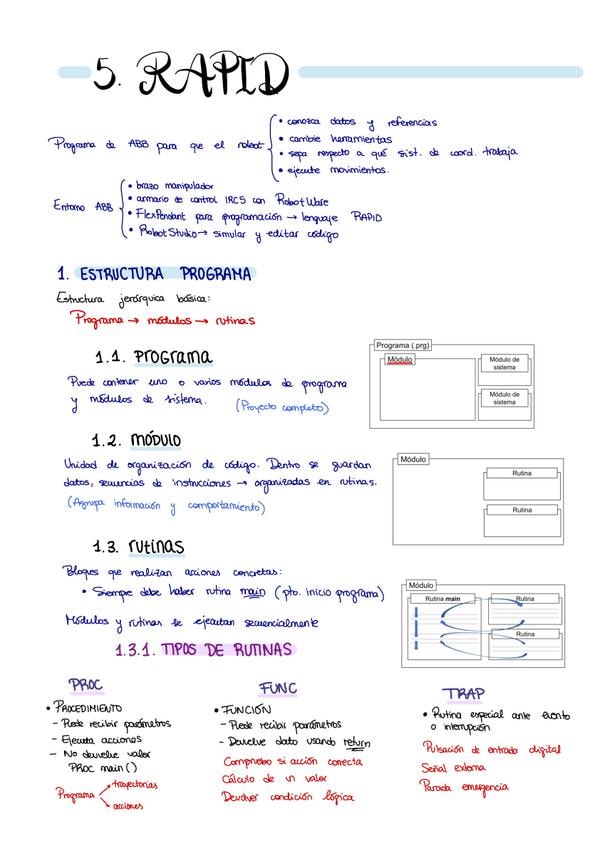 5. RAPID
Programa de ABB para que el robot
• conozca datos y referencias
• cambie herramientas
• sepa respecto a qué sist. de coord. trabaja
• ejecute movimientos.
Entorno ABB
• brazo manipulador
• armario de control IRC5 con RobotWare
• FlexPendant para programación → lenguaje RAPID
• RobotStudio → simular y editar código
1. ESTRUCTURA PROGRAMA
Estructura jerárquica básica:
Programa → módulos → rutinas
1.1. Programa
Puede contener uno o varios módulos de programa
y módulos de sistema. (Proyecto completo)
Programa (.prg)
Módulo
Módulo de
sistema
Módulo de
sistema
1.2. Módulo
Unidad de organización de código. Dentro se guardan
datos, secuencias de instrucciones → organizadas en rutinas.
(Agrupa información y comportamiento)
Módulo
Rutina
Rutina
1.3. rutinas
Bloques que realizan acciones concretas:
• Siempre debe haber rutina main (pto. inicio programa)
Módulos y rutinas se ejecutan secuencialmente
Módulo
Rutina main
Rutina
Rutina
1.3.1. TIPOS DE RUTINAS
PROC
• PROCEDIMIENTO
- Puede recibir parámetros
- Ejecuta acciones
- No devuelve valor
PROC main()
Programa
trayectorias
acciones
FUNC
• FUNCIÓN
- Puede recibir parámetros
- Devuelve dato usando return
Comprueba si acción correcta
Cálculo de un valor
Devolver condición lógica
TRAP
• Rutina especial ante evento
o interrupción
Pulsación de entrada digital
Señal externa
Parada emergencia